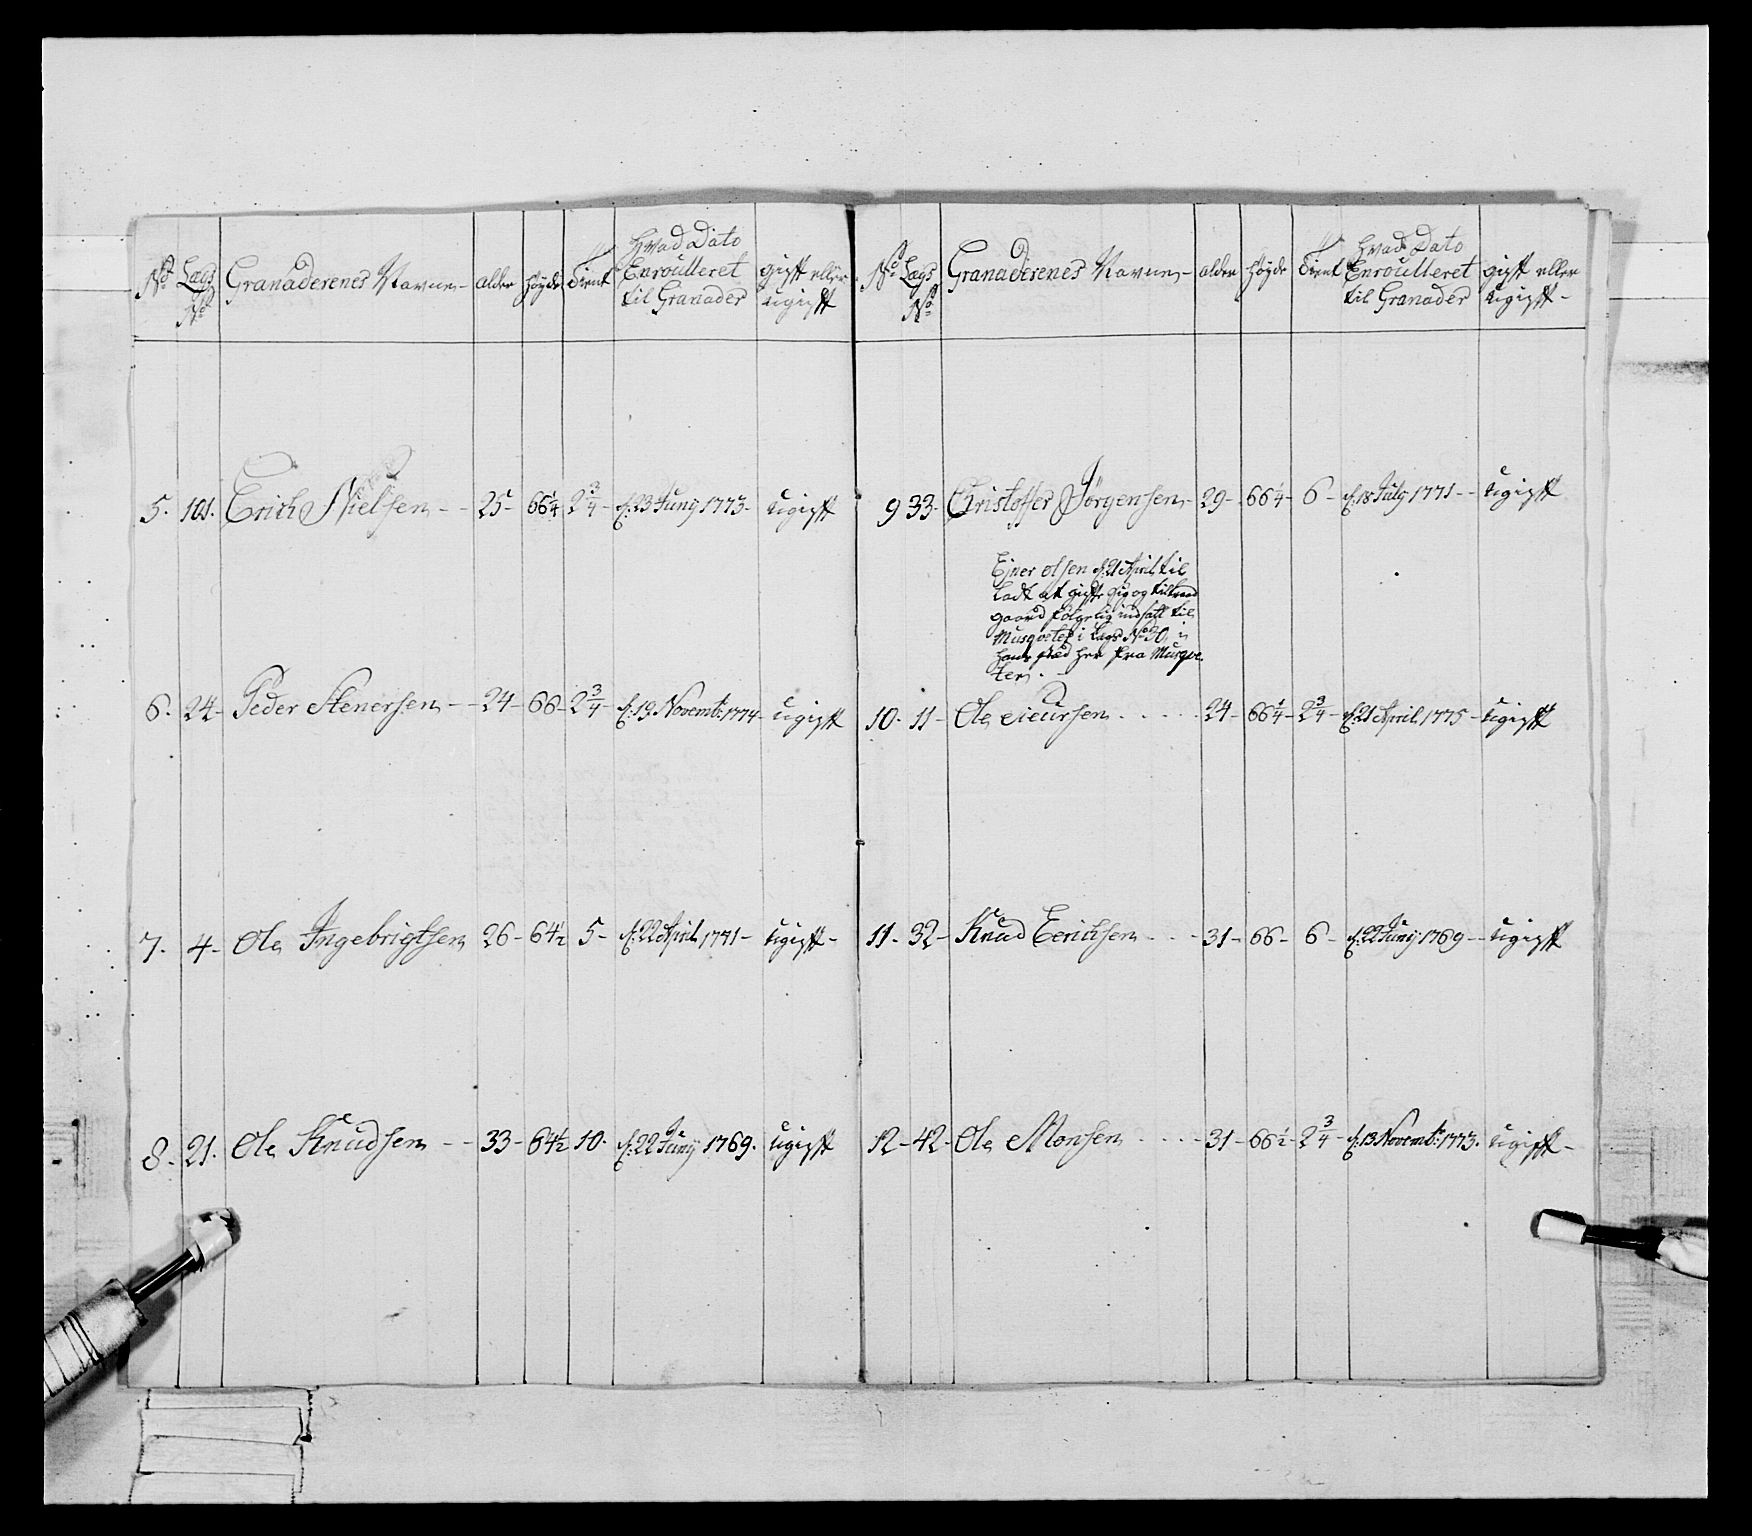 No Lægs No Granaderenes Navne alder Høyde Tient Hvad Dato Enroulleret til Granader gift eller ugift
5. 101. Erich Nielsen 25 66 1/4 2 3/4 d. 23 Juny 1773 ugift
6. 24 Peder Stenersen 24 66 2 3/4 d. 19 Novembr. 1774 ugift
7. 4 Ole Ingebrigtsen 26 64 1/2 5 d. 22 April 1771 ugift
8. 21. Ole Knudsen 33 64 1/2 10. d. 22 Juny 1769. ugift
No Lægs No Granaderenes Navne alder Høyde Tient Hvad Dato Enroulleret til Granader gift eller ugift
9 33. Christoffer Jörgensen 29 66 1/4 6 d. 18 July 1771 ugift
Ejner olsen d. 21 April til
ladt at gifte sig og
gaard følgelig indsatt til
i Lægd No 30, i
hans sted her fra Musque
ter.
10. 11 Ole 24 66 1/4 2 3/4 d. 21 April 1775 ugift
11. 32 Knud Ericksen 31 66 6 d. 22 Juny 1769 ugift
12 42 Ole Monsen 31 66 1/2 2 3/4 d. 13 Novembr. 1773. ugift